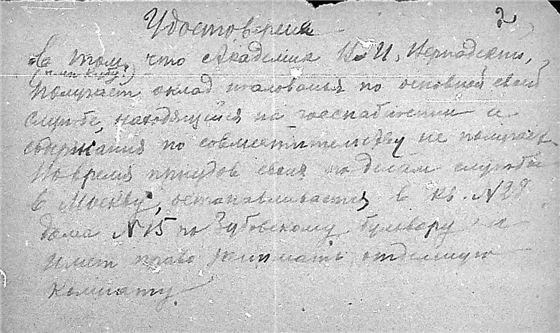 Удостоверение 2
в том, что Академик В. И. Вернадский,
получает оклад жалованья по основной своей
службе, находящийся на госснабжении и
содержания по совместительству не получает.
Во время приездов своих по делам службы
в Москву, останавливается в кв. №29
дома №15 по Зубовскому бульвару и
имеет право занимать отдельную
комнату.